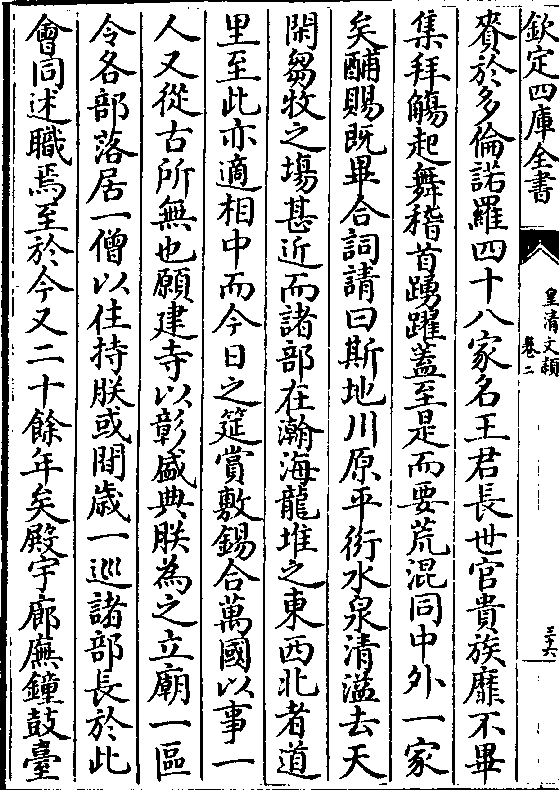 欽定四庫全書
皇清文穎
卷二
三十六
賚於多倫諾羅四十八家名王君長世官貴族靡不畢
集拜觴起舞稽首踴躍蓋至是而要荒混同中外一家
矣酺賜既畢合詞請曰斯地川原平衍水泉清溢去天
閑芻牧之場甚近而諸部在瀚海龍堆之東西北者道
里至此亦適相中而今日之筵賞敷錫合萬國以事一
人又從古所無也願建寺以彰盛典朕為之立廟一區
令各部落居一僧以住持朕或間歲一巡諸部長於此
會同述職焉至於今又二十餘年矣殿宇廊廡鐘鼓臺